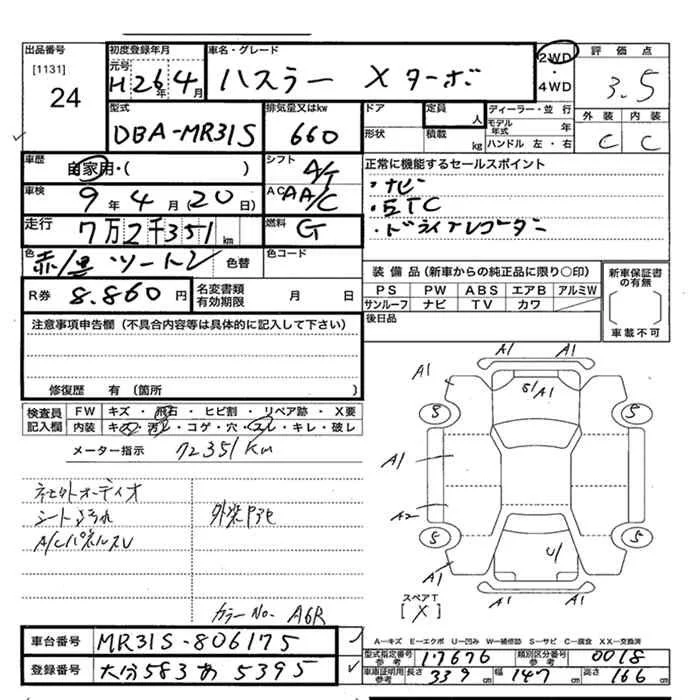 出品番号
[1131]
24
初度登録年月
元号
H26年4月
車名・グレード
ハスラー Xターボ
2WD
・
4WD
評価点
3.5
外装 内装
C C
型式
DBA-MR31S
排気量又はkw
660
ドア
形状
定員
人
積載
kg
ディーラー・並行
モデル年式 年
ハンドル 左・右
車歴
自家用・( )
シフト
A/T
車検
9年4月(20日)
AC
AA/C
走行
7万2千351km
燃料
G
色
赤/黒 ツートン
色替
色コード
R券
8.860円
名変書類有効期限
月 日
正常に機能するセールスポイント
・ナビ
・ETC
・ドライブレコーダー
装備品(新車からの純正品に限り○印)
PS PW ABS エアB アルミW
サンルーフ ナビ TV カワ
新車保証書の有無
車載不可
後日品
注意事項申告欄(不具合内容等は具体的に記入して下さい)
修復歴 有(箇所 )
検査員記入欄
FW キズ・飛石・ヒビ割・リペア跡・X要
内装 キズ・汚レ・コゲ・穴・スレ・キレ・破レ
メーター指示 72351km
A/CパネルスU
カラーNo. A6R
A1 A1
A1
S/A1
S S
A1
A2
S S
U1
A1
A1 A1
スペアT
[X]
A―キズ E―エクボ U―凹み W―補修跡 S―サビ C―腐食 XX―交換済
車台番号
MR31S-806175
登録番号
大分583あ5395
型式指定番号参考
17676
類別区分番号参考
0018
車庫証明用参考
長さ 339cm 幅 147cm 高さ 166cm